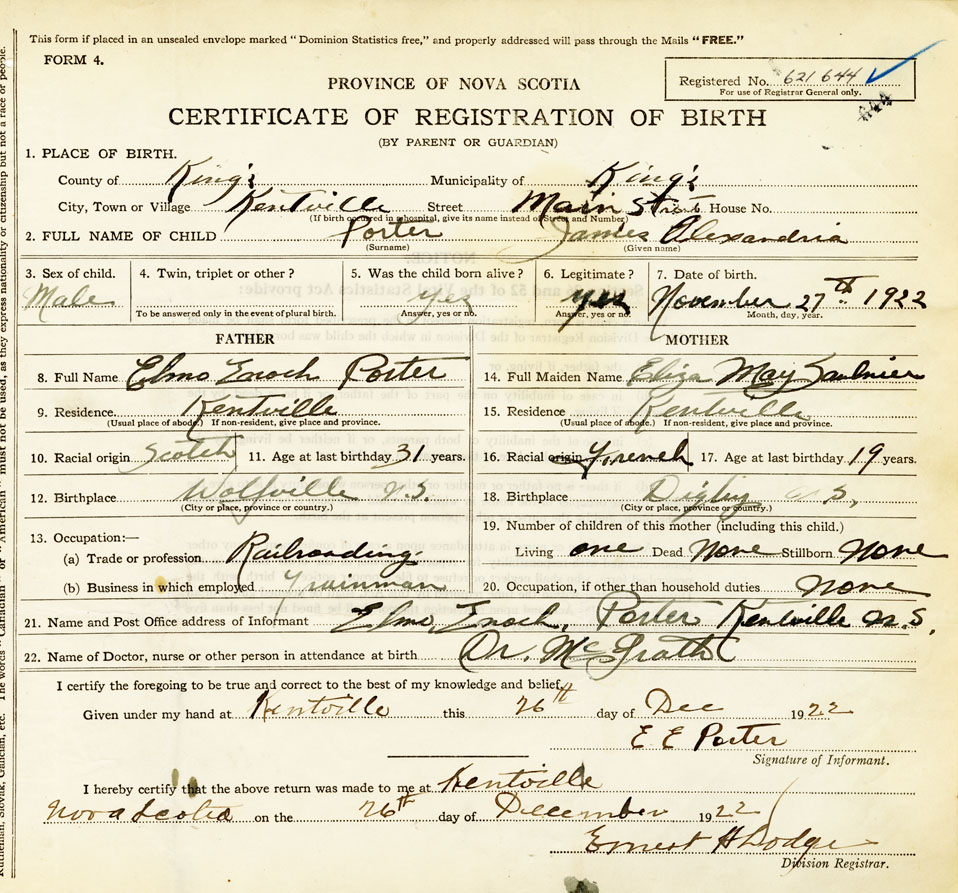 This form if placed in an unsealed envelope marked “Dominion Statistics free,” and properly addressed will pass through the Mails “FREE.”
FORM 4.
Registered No. 621644
For use of Registrar General only.
644
PROVINCE OF NOVA SCOTIA
CERTIFICATE OF REGISTRATION OF BIRTH
(BY PARENT OR GUARDIAN)
1. PLACE OF BIRTH.
County of King's Municipality of King's
City, Town or Village Kentville Street Main Street House No.
(If birth occurred in a hospital, give its name instead of Street and Number)
2. FULL NAME OF CHILD Porter James Alexandria
(Surname) (Given name)
3. Sex of child. Male
4. Twin, triplet or other?
To be answered only in the event of plural birth.
5. Was the child born alive? Yes
Answer, yes or no.
6. Legitimate? Yes
Answer, yes or no.
7. Date of birth. November 27th 1922
Month, day, year.
FATHER
8. Full Name Elmo Enoch Porter
9. Residence Kentville
(Usual place of abode.) If non-resident, give place and province.
10. Racial origin Scotch 11. Age at last birthday 31 years.
12. Birthplace Wolfville N.S.
(City or place, province or country.)
13. Occupation:—
(a) Trade or profession Railroading
(b) Business in which employed Trainman
MOTHER
14. Full Maiden Name Eliza May Saulnier
15. Residence Kentville
(Usual place of abode.) If non-resident, give place and province.
16. Racial origin French 17. Age at last birthday 19 years.
18. Birthplace Digby N.S.,
(City or place, province or country.)
19. Number of children of this mother (including this child.)
Living one Dead None Stillborn None
20. Occupation, if other than household duties None
21. Name and Post Office address of Informant Elmo, Enoch, Porter Kentville N.S.
22. Name of Doctor, nurse or other person in attendance at birth Dr. McGrath
I certify the foregoing to be true and correct to the best of my knowledge and belief,
Given under my hand at Kentville this 26th day of Dec 1922
E E Porter
Signature of Informant.
I hereby certify that the above return was made to me at Kentville
Nova Scotia on the 26th day of December 1922
Ernest H Dodge
Division Registrar.